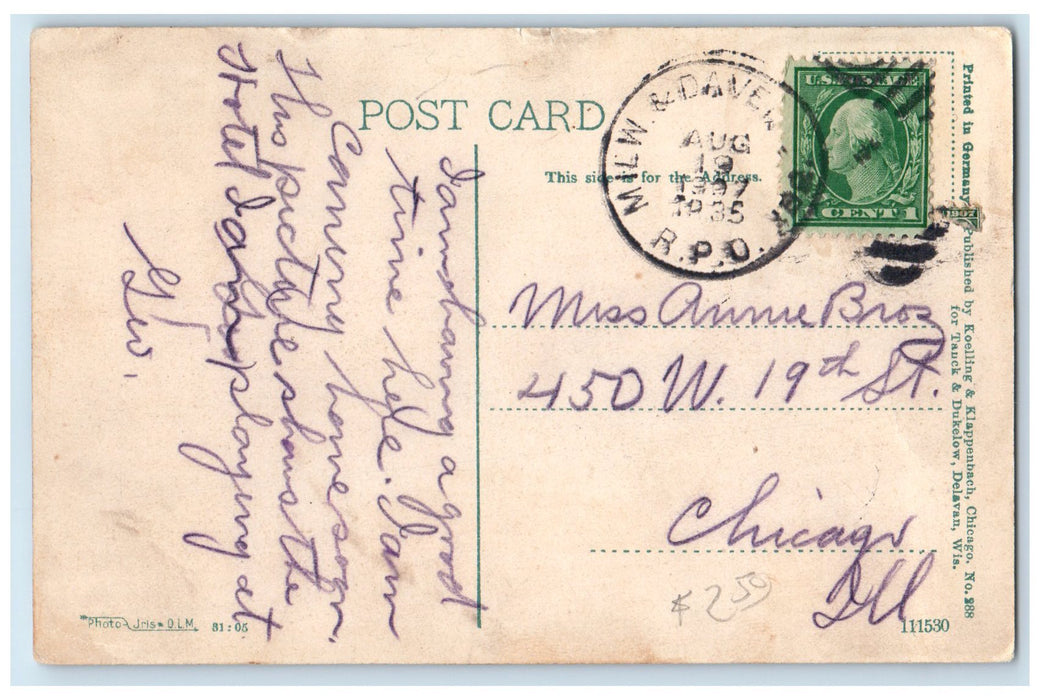 POST CARD
This side is for the Address.
MILW. & DAVEN
AUG
19
R.P.O.
U.S. POSTAGE
1 CENT 1
I am having a good
time here. I am
Coming home soon.
This picture shows the
Hotel I am playing at
Geo.
Miss Annie Bros
450 W. 19th St.
Chicago
Ill
$2.50
Printed in Germany
1907
Published by Koelling & Klappenbach, Chicago. No. 288
for Tanck & Dukelow, Delavan, Wis.
111530
Photo-Jris-D.L.M. 81:05